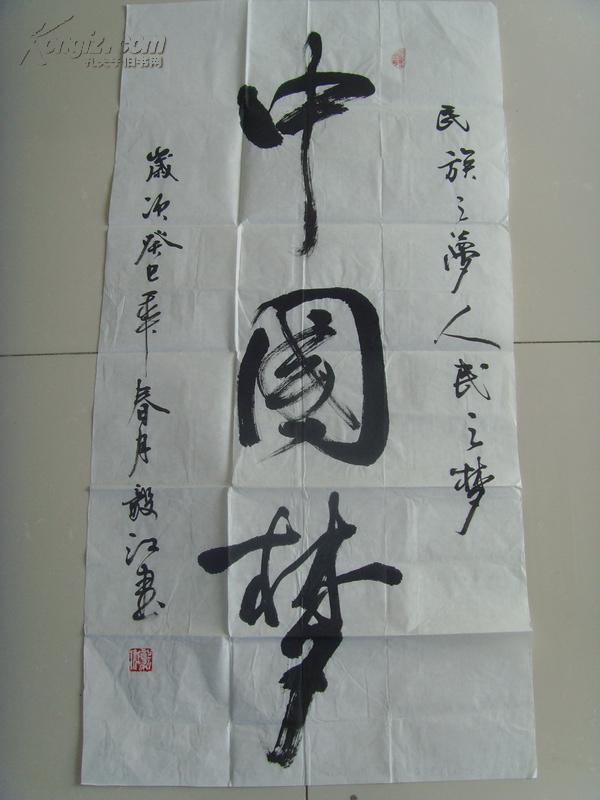 民族之夢人民之梦
中國梦
歲次癸巳年春月毅江書
Kongfz.com
孔夫子旧书网